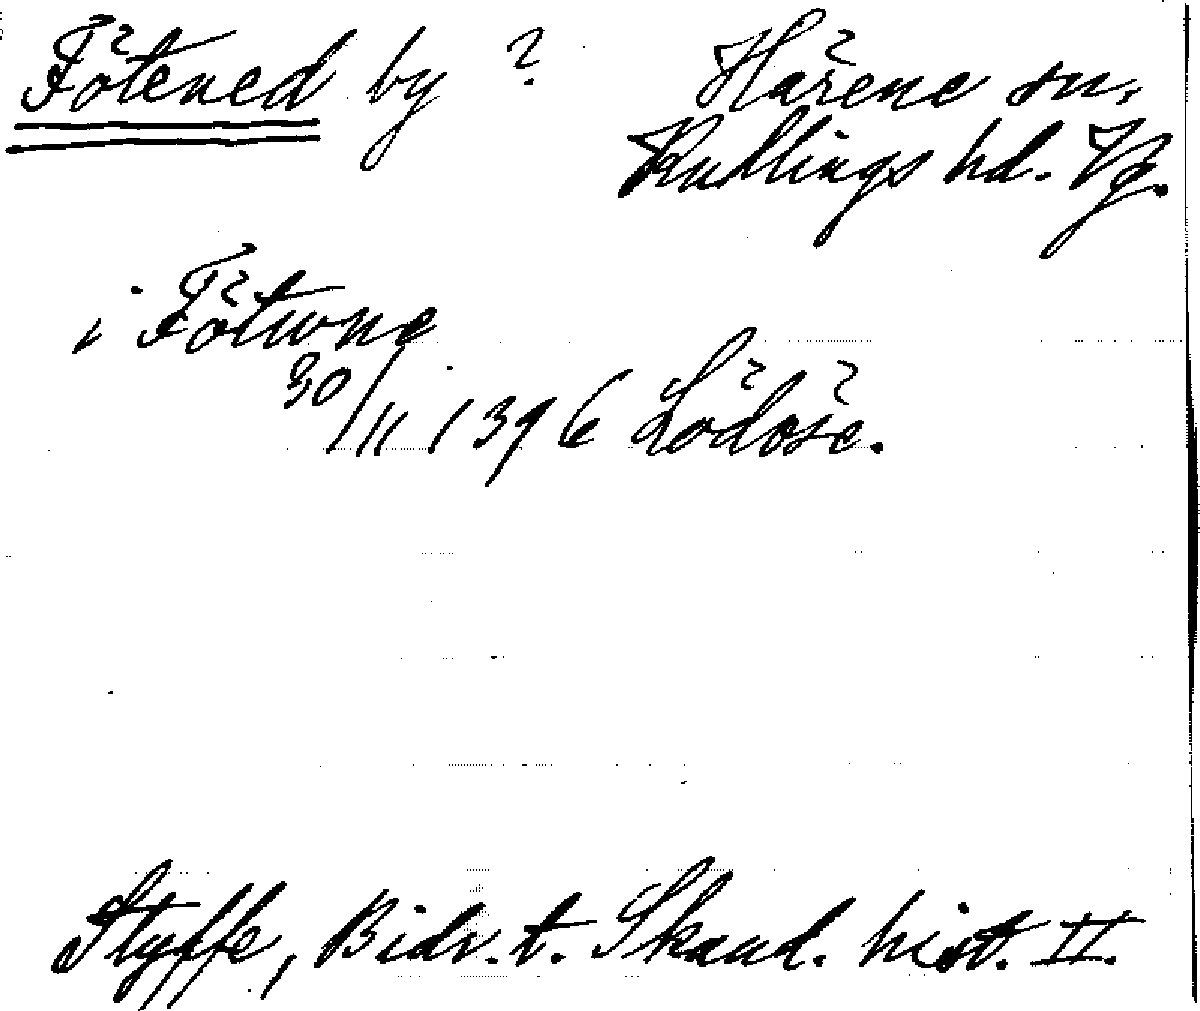 Fötened by ? Härene sn,
Kullings hd. Vg.
i Fötwne
30/11 1396 Lödöse.
Styffe, Bidr. t. Skand. hist. II.